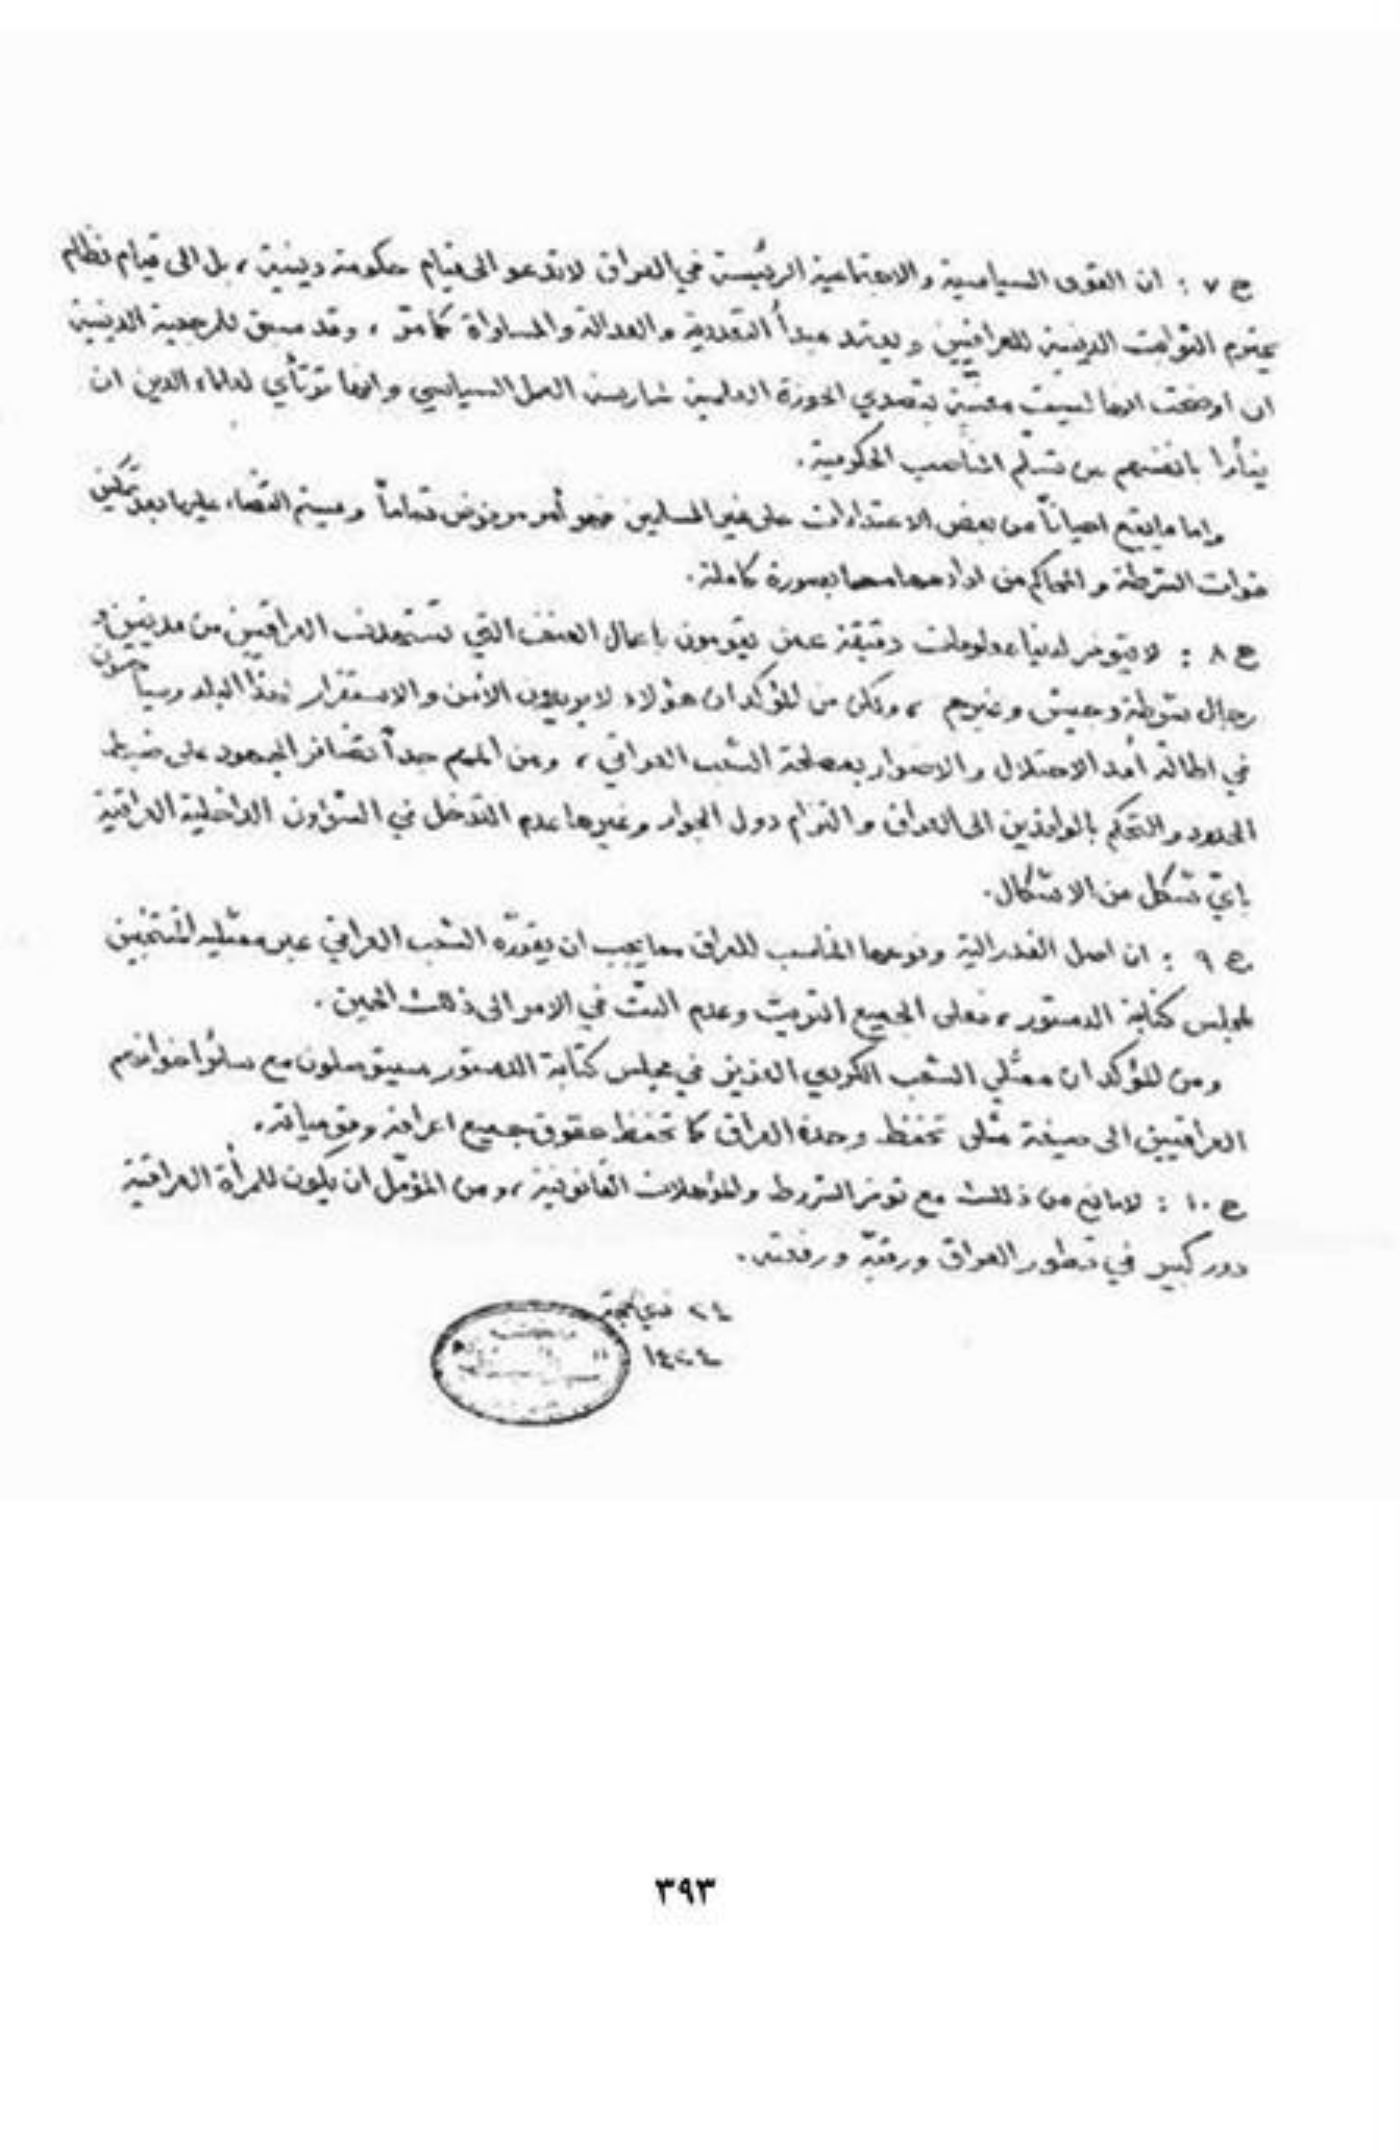 ج ٧ : ان القوى السياسية والاجتماعية الرئيسة في العراق لا تدعو الى قيام حكومة دينية ، بل الى قيام نظام
يحترم الثوابت الدينية للعراقيين ويعتمد مبدأ التعددية والعدالة والمساواة كما مرّ ، وقد سبق للمرجعية الدينية
ان اوضحت انها ليست معنيّة بتصدي الحوزة العلمية لممارسة العمل السياسي وانها ترتأي لعلماء الدين ان
ينأوا بانفسهم عن تسلّم المناصب الحكومية .
واما ما يقع احياناً من بعض الاعتداءات على غير المسلمين فهو أمر مرفوض تماماً وسيتم القضاء عليها بعد تمكين
قوات الشرطة والمحاكم من اداء مهامها بصورة كاملة .
ج ٨ : لا يتوفر لدينا معلومات دقيقة عمن يقومون باعمال العنف التي تستهدف العراقيين من مدنيين و
رجال شرطة وجيش وغيرهم ، ولكن من المؤكد ان هؤلاء لا يريدون الأمن والاستقرار لهذا البلد ويساهمون
في اطالة أمد الاحتلال والاضرار بمصلحة الشعب العراقي ، ومن المهم جداً تضافر الجهود على ضبط
الحدود والتحكم بالوافدين الى العراق والتزام دول الجوار وغيرها عدم التدخل في الشؤون الداخلية العراقية
بايّ شكل من الاشكال .
ج ٩ : ان اصل الفدرالية ونوعها المناسب للعراق مما يجب ان يقرّره الشعب العراقي عبر ممثليه المنتخبين
لمجلس كتابة الدستور ، فعلى الجميع التريث وعدم البتّ في الامر الى ذلك الحين .
ومن المؤكد ان ممثلي الشعب الكردي العزيز في مجلس كتابة الدستور سيتوصلون مع سائر اخوانهم
العراقيين الى صيغة مثلى تحفظ وحدة العراق كما تحفظ حقوق جميع اعراقه وقومياته .
ج ١٠ : لا مانع من ذلك مع توفر الشروط والمؤهلات القانونية ، ومن المؤمّل ان يكون للمرأة العراقية
دور كبير في تطور العراق ورقيّه ورفعته .
٢٤ ذي الحجة
١٤٢٤
٣٩٣